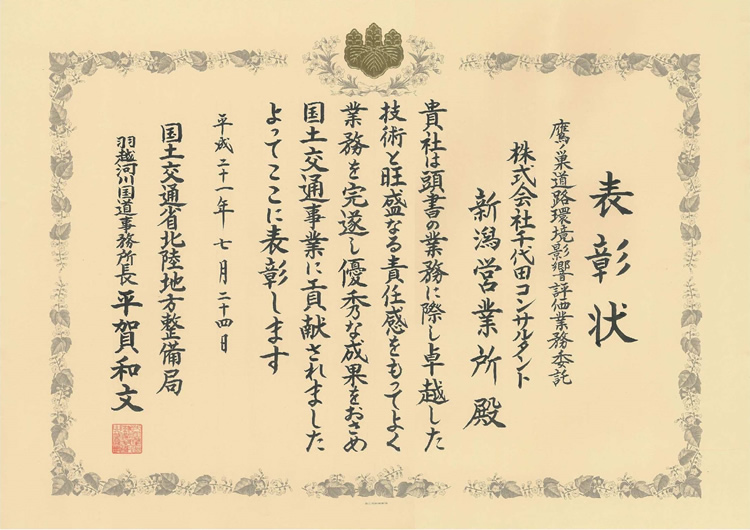 表彰状
鷹ノ巣道路環境影響評価業務委託
株式会社千代田コンサルタント
新潟営業所殿
貴社は頭書の業務に際し卓越した
技術と旺盛なる責任感をもってよく
業務を完遂し優秀な成果をおさめ
国土交通事業に貢献されました
よってここに表彰します
平成二十一年七月二十四日
国土交通省北陸地方整備局
羽越河川国道事務所長 平賀和文